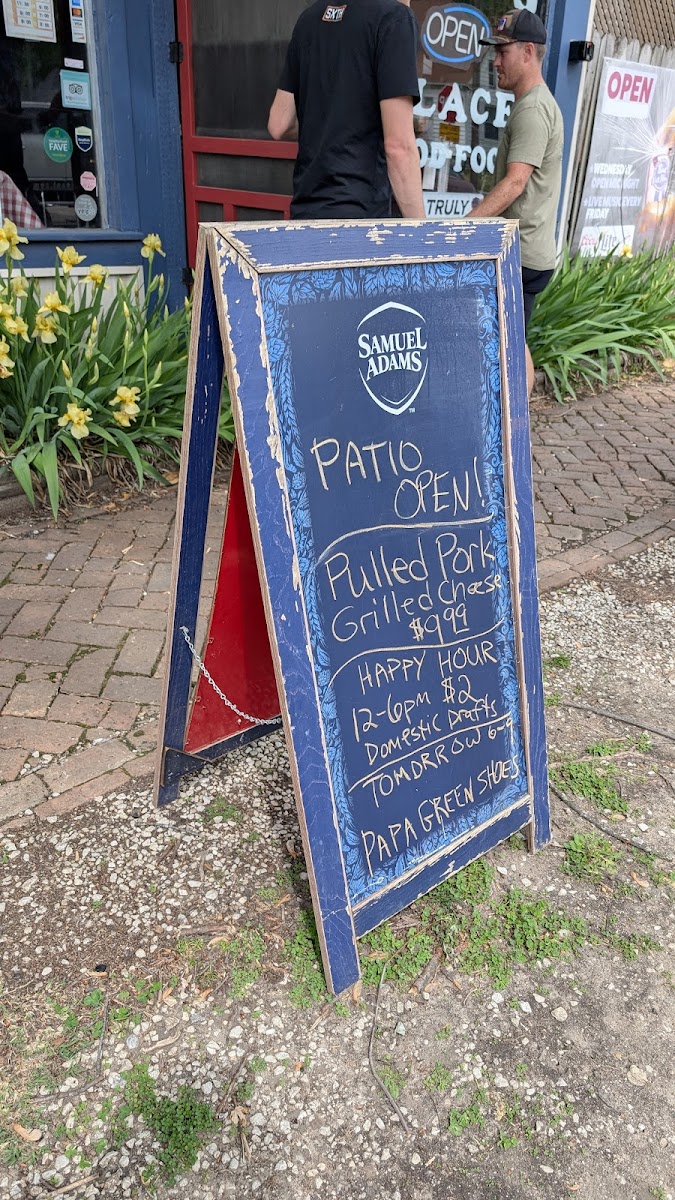 SXTH
OPEN
LACE
OD FOO
TRULY
OPEN
WEDNESDAY
OPEN MIC NIGHT
LIVE MUSIC EVERY
FRIDAY
FAVE
SAMUEL
ADAMS
TM
PATIO
OPEN!
Pulled Pork
Grilled Cheese
$9.99
HAPPY HOUR
12-6pm $2
Domestic Drafts
TOMORROW 6-9
PAPA GREEN SHOES